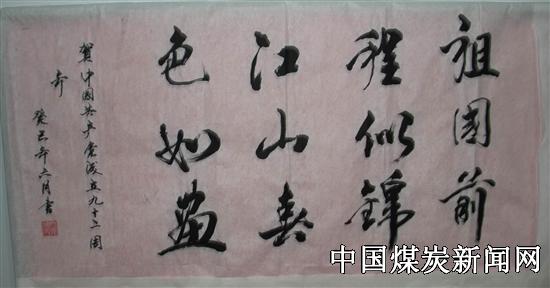 祖国前
程似锦
江山春
色如畫
贺中国共产党成立九十二周
年
癸巳年六月书
中国煤炭新闻网